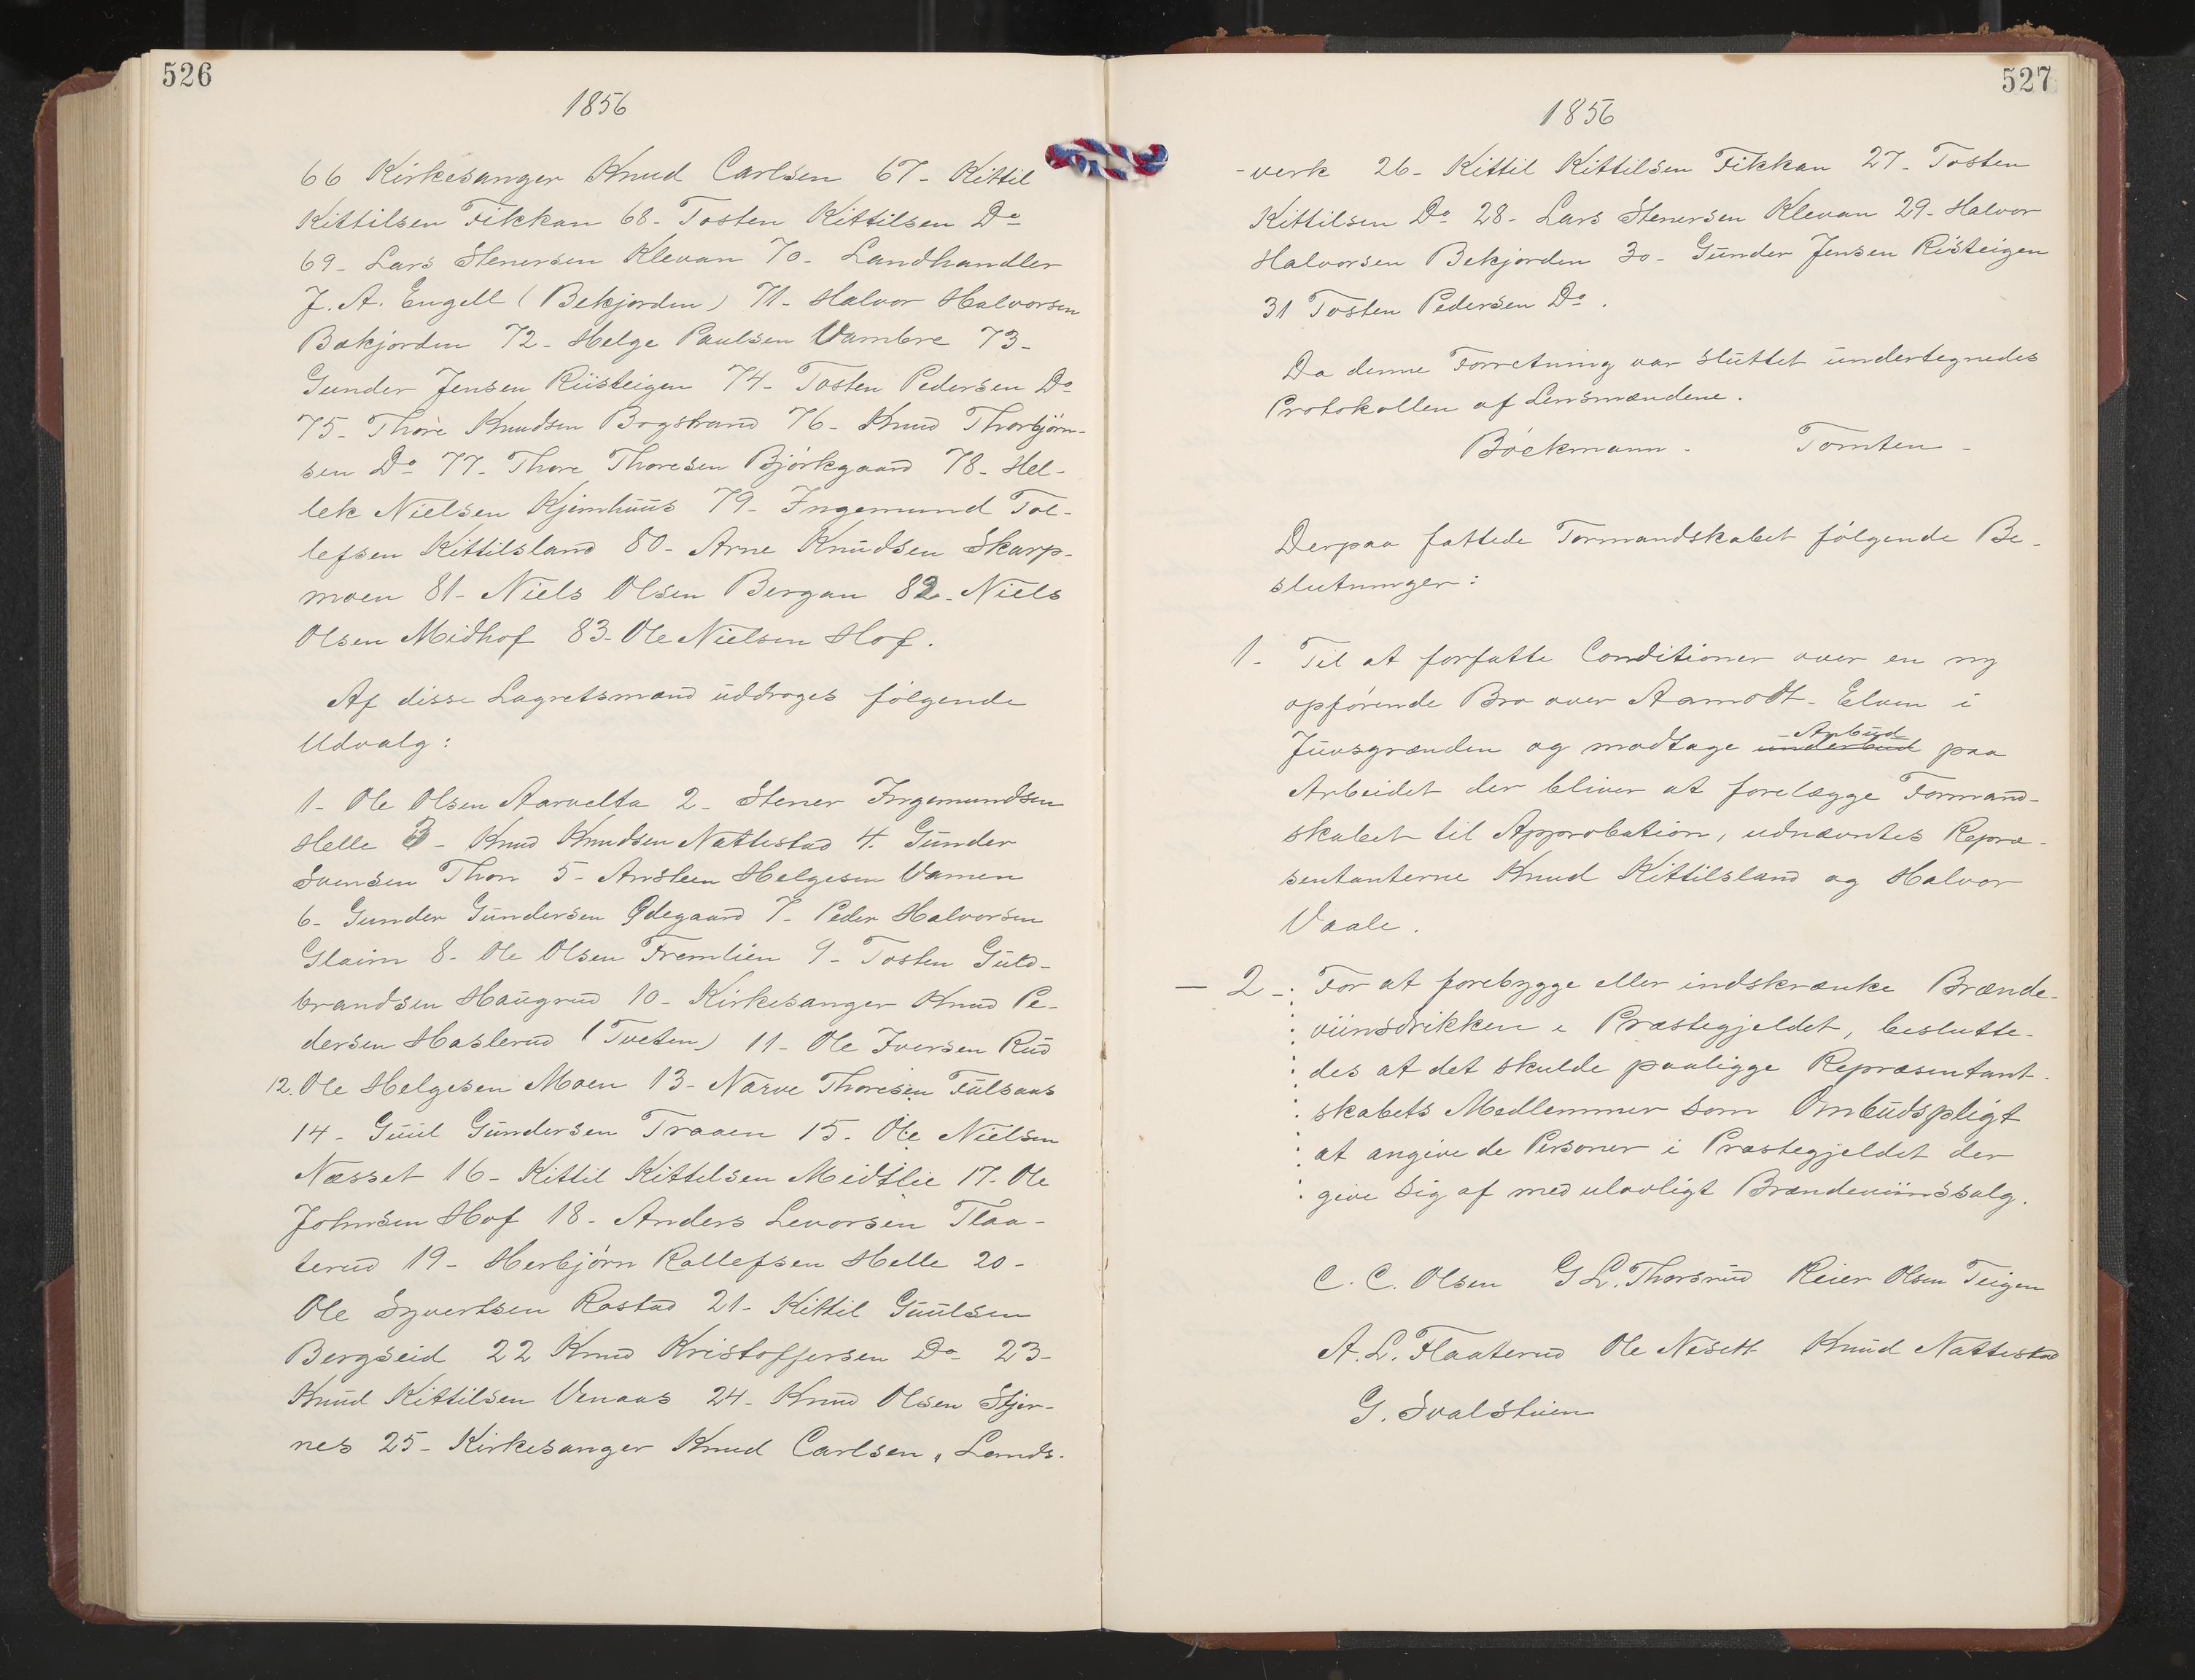 526
1856
66 Kirkesanger Knud Carlsen 67- Kittil
Kittilsen Fikkan 68- Tosten Kittilsen Do
69- Lars Stenersen Klevan 70- Landhandler
J. A. Engell (Bekjorden) 71- Halvor Halvorsen
Bækjorden 72- Helge Paulsen Vambre 73-
Gunder Jensen Riisteigen 74- Tosten Pedersen Do
75- Thore Knudsen Bogstrand 76- Knud Thorbjørn-
sen Do 77- Thore Thoresen Bjørkgaard 78- Hel-
lek Nielsen Kjemhuus 79- Ingemund Tol-
lefsen Kittilsland 80- Arne Knudsen Skarp-
moen 81- Niels Olsen Bergan 82- Niels
Olsen Midhof 83- Ole Nielsen Hof.
Af disse Lagretsmænd uddroges følgende
Udvalg:
1- Ole Olsen Aarvelta 2- Stener Ingemundsen
Helle 3- Knud Knudsen Nattestad 4. Gunder
Svensen Thon 5- Ansteen Helgesen Vamen
6- Gunder Gundersen Ødegaard 7- Peder Halvorsen
Glaim 8- Ole Olsen Fremlien 9- Tosten Guld-
brandsen Haugrud 10- Kirkesanger Knud Pe-
dersen Haslerud (Tveten) 11- Ole Iversen Rud
12. Ole Helgesen Moen 13- Narve Thoresen Fulsaas
14- Guul Gundersen Traaen 15- Ole Nielsen
Næsset 16- Kittil Kittilsen Midtlie 17- Ole
Johnsen Hof 18- Anders Levorsen Flaa-
terud 19- Herbjørn Rollefsen Helle 20-
Ole Syvertsen Rostad 21- Kittil Guulsen
Bergseid 22 Knud Kristoffersen Do 23-
Knud Kittilsen Venaas 24- Knud Olsen Stjer-
nes 25- Kirkesanger Knud Carlsen, Lands-
527
1856
-verk 26- Kittil Kittilsen Fikkan 27- Tosten
Kittilsen Do 28- Lars Stenersen Klevan 29- Halvor
Halvorsen Bekjorden 30- Gunder Jensen Risteigen
31 Tosten Pedersen Do.
Da denne Forretning var sluttet undertegnedes
Protokollen af Lensmændene.
Böckmann- Tomten-
Derpaa fattede Formandskabet følgende Be-
slutninger:
1- Til at forfatte Conditioner over en ny
opførende Bro over Aamodt-Elven i
Anbud
Juvsgrænden og modtage underbud paa
Arbeidet der bliver at forelægge Formand-
skabet til Approbation, udnævntes Repræ-
sentanterne Knud Kittilsland og Halvor
Vaale.
- 2- For at forebygge eller indskrænke Brænde-
viinsdrikken i Præstegjeldet, beslutte-
des at det skulde paaligge Repræsentant-
skabets Medlemmer som Ombudspligt
at angive de Personer i Præstegjeldet der
give sig af med ulovligt Brændeviinssalg.
C. C. Olsen G L. Thorsrud Reier Olsen Teigen
A. L. Flaaterud Ole Nesett Knud Nattestad
G. Svalstuen